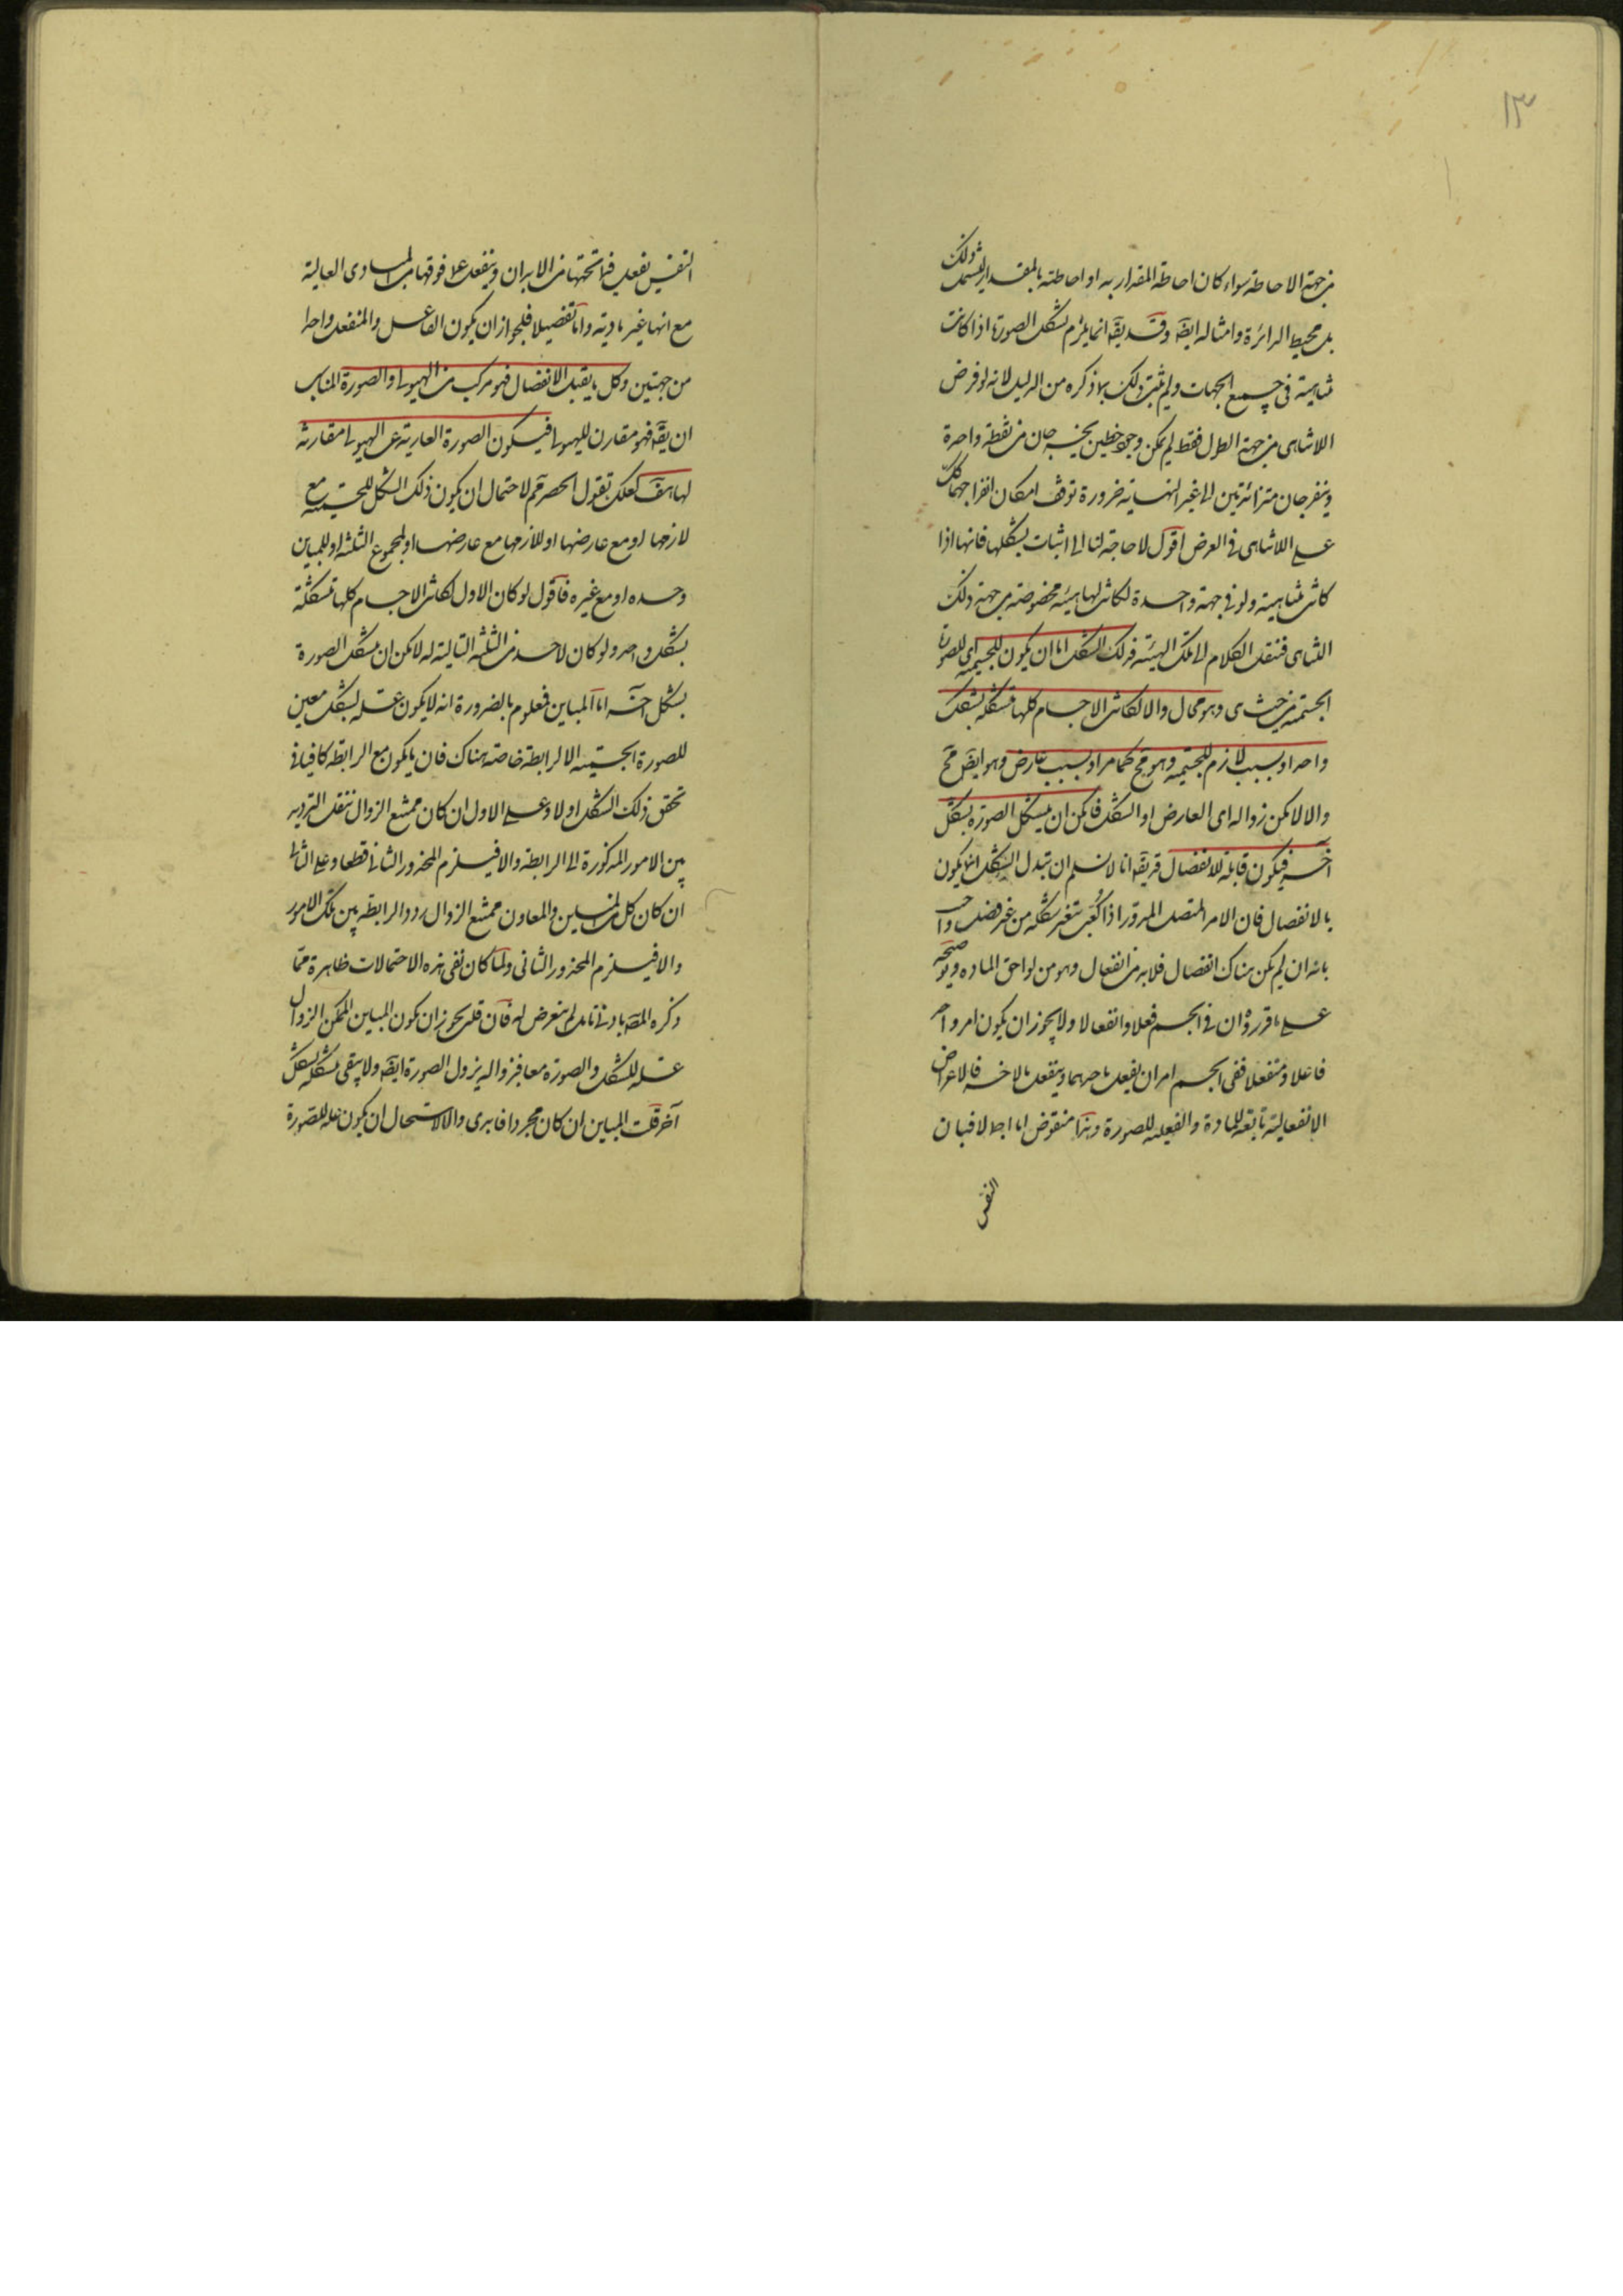 ١٣
من جهة الاحاطة سواء كان احاطة المقدار به او احاطته بالمقدار ليشمل ذلك
بل محيط الدائرة وامثاله ايضه وقد يقه انما يلزم تشكل الصورة اذا كانت
متناهية فى جميع الجهات ولم يثبت ذلك بما ذكره من الدليل لانه لو فرض
اللاتناهى من جهة الطول فقط لم يمكن وجود خطين يخرجان من نقطة واحدة
وينفرجان متزائدين الى غير النهاية ضرورة توقف امكان انفراجهما كك
على اللاتناهى فى العرض اقول لا حاجة لنا الى اثبات تشكلها فانها اذا
كانت متناهية ولو فى جهة واحدة لكانت لها هيئة مخصوصة من جهة ذلك
التناهى فننقل الكلام الى تلك الهيئة فذلك الشكل اما ان يكون للجسمية اى للصورة
الجسمية من حيث هى وهو محال والا لكانت الاجسام كلها متشكلة بشكل
واحد او بسبب لازم للجسمية وهو مح كما مر او بسبب عارض وهو ايضه مح
والا لامكن زواله اى العارض او الشكل فامكن ان يتشكل الصورة بشكل
آخر فيكون قابلة للانفصال قد يقه انا لا نسلم ان تبدل الشكل انما يكون
بالانفصال فان الامر المتصل المدور اذا كعب تتغير شكله من غير فصل واجيب
بانه ان لم يكن هناك انفصال فلابد من انفعال وهو من لواحق الماده وتوضيحه
على ما قرروه ان فى الجسم فعلا وانفعالا ولا يجوز ان يكون امر واحد
فاعلا ومنفعلا ففى الجسم امران يفعل باحدهما وينفعل بالاخر فالاعراض
الانفعالية تابعة للمادة والفعلية للصورة وهذا منقوض اما اجمالا فبان
النفس
النفس يفعل فيما تحتها من الابدان وينفعل عما فوقها من المبادى العالية
مع انها غير مادية واما تفصيلا فلجواز ان يكون الفاعل والمنفعل واحدا
من جهتين وكل ما يقبل الانفصال فهو مركب من الهيولى والصورة المناسب
ان يقه فهو مقارن للهيولى فيكون الصورة العارية عن الهيولى مقارنة
لها هف لعلك تقول الحصر مم لاحتمال ان يكون ذلك الشكل للجسمية مع
لازمها او مع عارضها او للازمها مع عارضها او لمجموع الثلثة او للمباين
وحده او مع غيره فاقول لو كان الاول لكانت الاجسام كلها متشكلة
بشكل واحد ولو كان لاحد من الثلثة التالية له لامكن ان يتشكل الصورة
بشكل آخر اما المباين فمعلوم بالضرورة انه لا يكون علة لشكل معين
للصورة الجسمية الا لرابطة خاصة هناك فان ما يكون مع الرابطة كافيا فى
تحقق ذلك الشكل اولا وعلى الاول ان كان ممتنع الزوال ننقل الترديد
بين الامور المذكورة الى الرابطة والا فيلزم المحذور الثانى قطعا وعلى الثانى
ان كان كل من المباين والمعاون ممتنع الزوال ردد الرابطة بين تلك الامور
والا فيلزم المحذور الثانى ولما كان نفى هذه الاحتمالات ظاهرة مما
ذكره المصه بادنى تامل لم يتعرض له فان قلت يجوز ان يكون المباين الممكن الزوال
علة للشكل والصورة معا فبزواله يزول الصورة ايضه ولا يبقى متشكلة بشكل
آخر قلت المباين ان كان مجردا فابدى والا لاستحال ان يكون علة للصورة